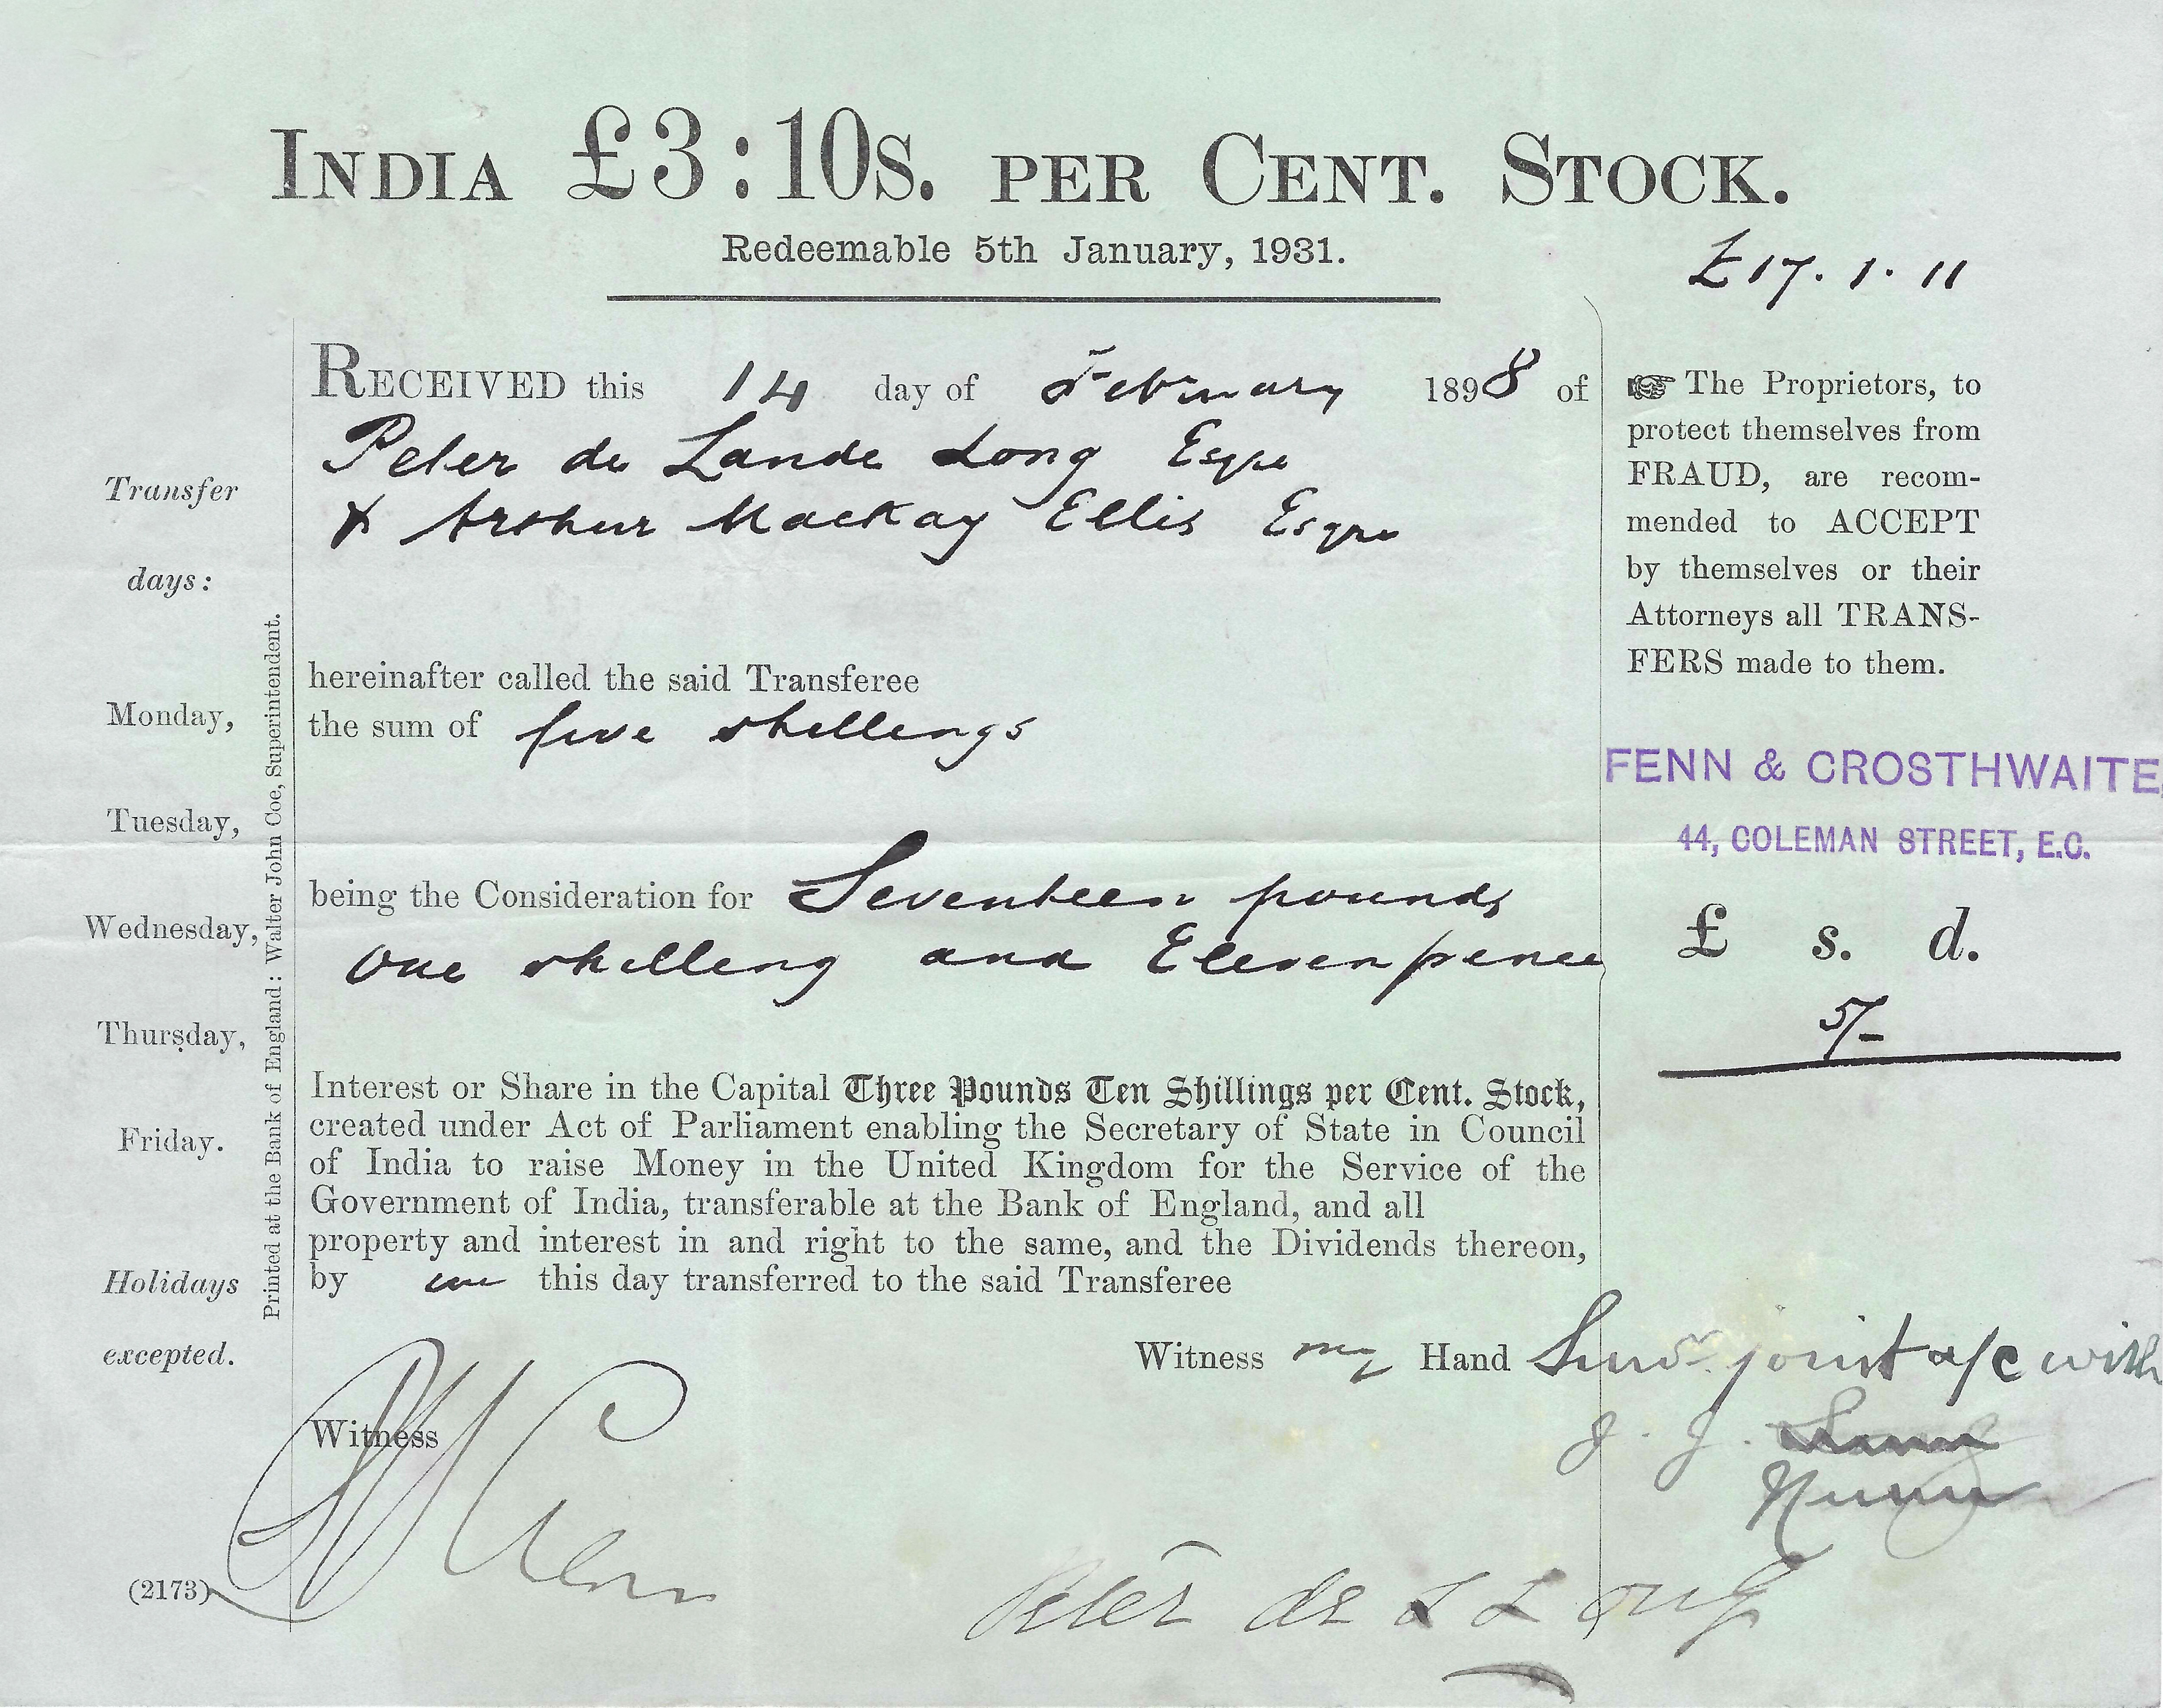 INDIA £3:10s. PER CENT. STOCK.
Redeemable 5th January, 1931.
£17. 1. 11
RECEIVED this 14 day of February 1898 of
Peter de Lande Long Esqre
& Arthur Mackay Ellis Esqre
hereinafter called the said Transferee
the sum of five shillings
being the Consideration for Seventeen pounds
One shilling and Elevenpence
Interest or Share in the Capital Three Pounds Ten Shillings per Cent. Stock,
created under Act of Parliament enabling the Secretary of State in Council
of India to raise Money in the United Kingdom for the Service of the
Government of India, transferable at the Bank of England, and all
property and interest in and right to the same, and the Dividends thereon,
by this day transferred to the said Transferee
Witness my Hand
joint a/c with
J. J.
Nunn
Witness
Peter de L Long
(2173)
Transfer
days:
Monday,
Tuesday,
Wednesday,
Thursday,
Friday.
Holidays
excepted.
Printed at the Bank of England: Walter John Coe, Superintendent.
☞ The Proprietors, to
protect themselves from
FRAUD, are recom-
mended to ACCEPT
by themselves or their
Attorneys all TRANS-
FERS made to them.
FENN & CROSTHWAITE,
44, COLEMAN STREET, E.C.
£ s. d.
5/-